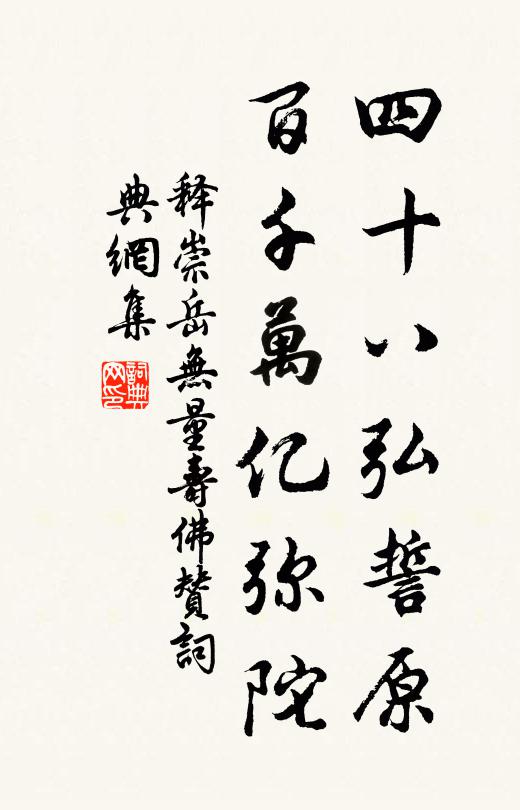 四十八弘誓原
百千萬亿弥陀
释崇岳無量壽佛赞詞
典網集
詞典网印